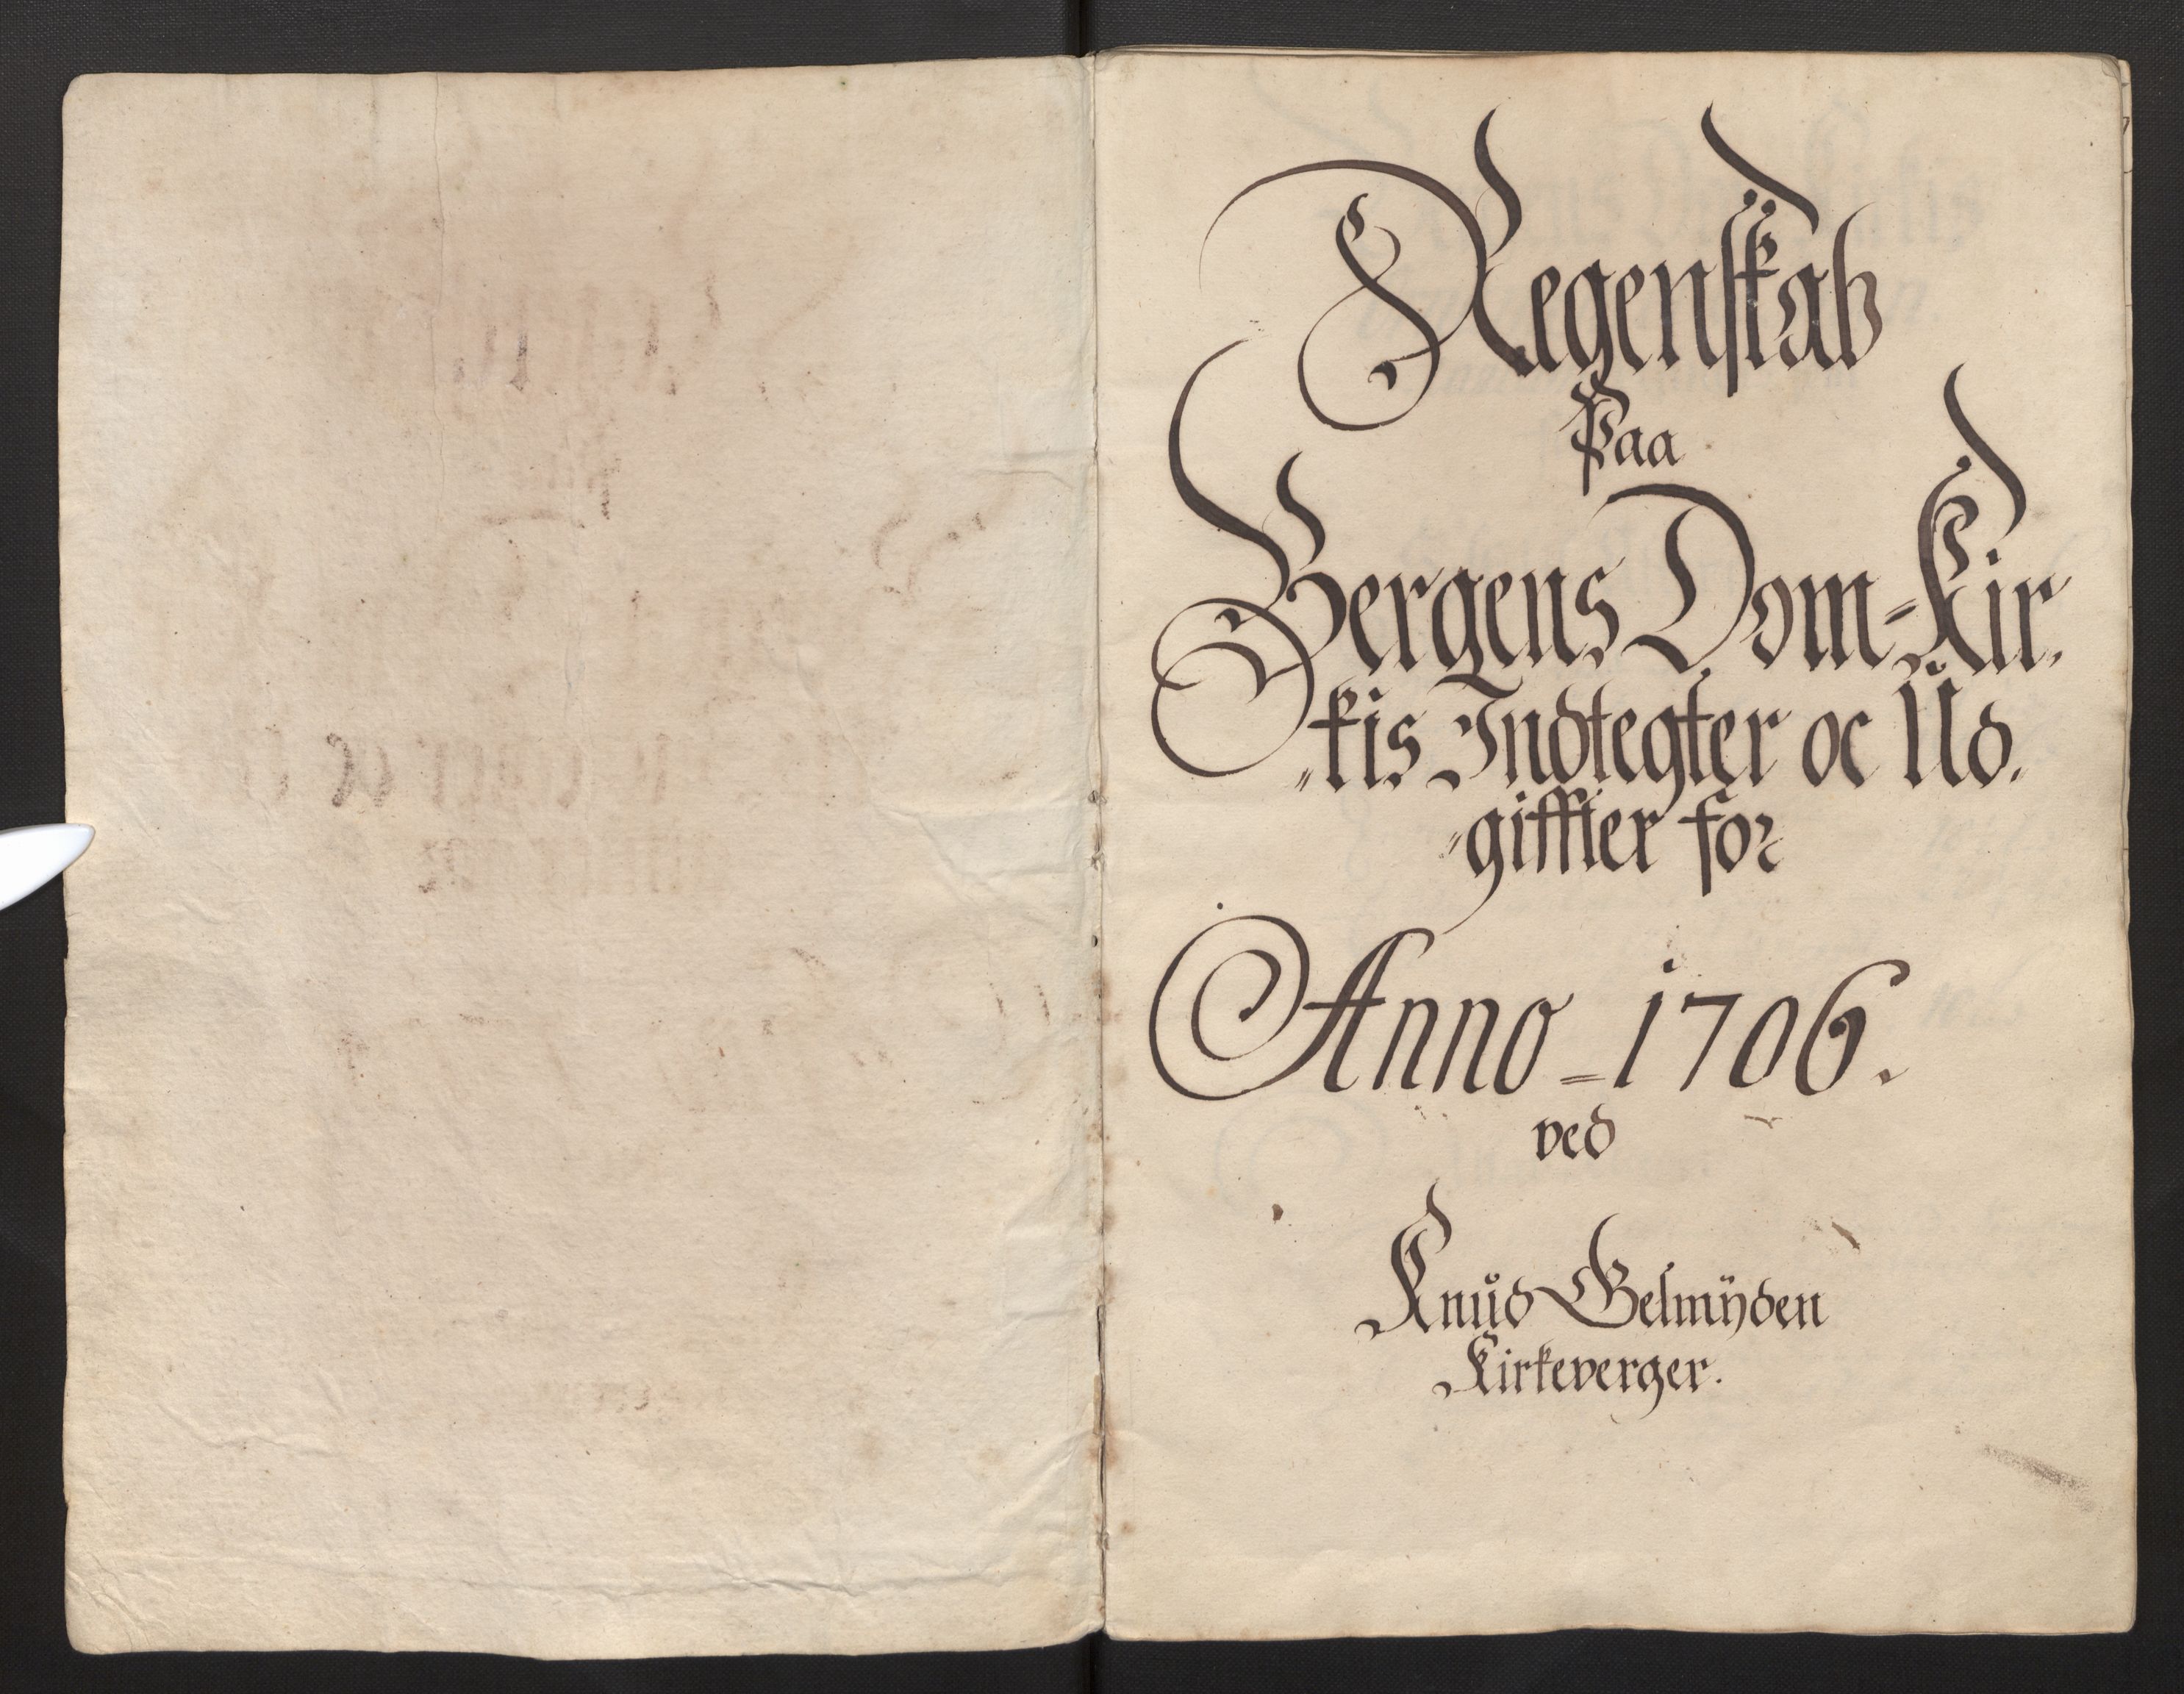 Regenskab
Paa
Bergens Dom=Kir,
"kis Indtegter oc Ud,
"giffter for
Anno = 1706.
ved
Knud Gelmÿden
Kirkeverger.